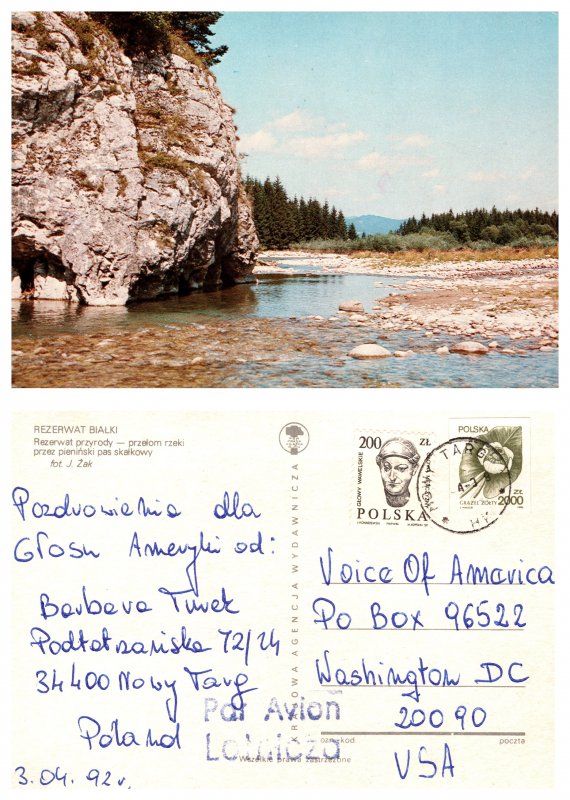 REZERWAT BIAŁKI
Rezerwat przyrody — przełom rzeki
przez pieniński pas skałkowy
fot. J. Żak
Pozdrowienia dla
Głosu Ameryki od:
Barbara Turek
Podtatrzańska 72/24
34400 Nowy Targ
Poland
3.04.92 r.
KRAJOWA AGENCJA WYDAWNICZA
200 ZŁ
GŁOWY WAWELSKIE
POLSKA
POLSKA
GRĄŻEL ŻÓŁTY
2000 ZŁ
NOWY TARG
Voice Of America
Po Box 96522
Washington DC
20090
USA
Par Avion
Lotnicza
ozn. kod
poczta
Wszelkie prawa zastrzeżone